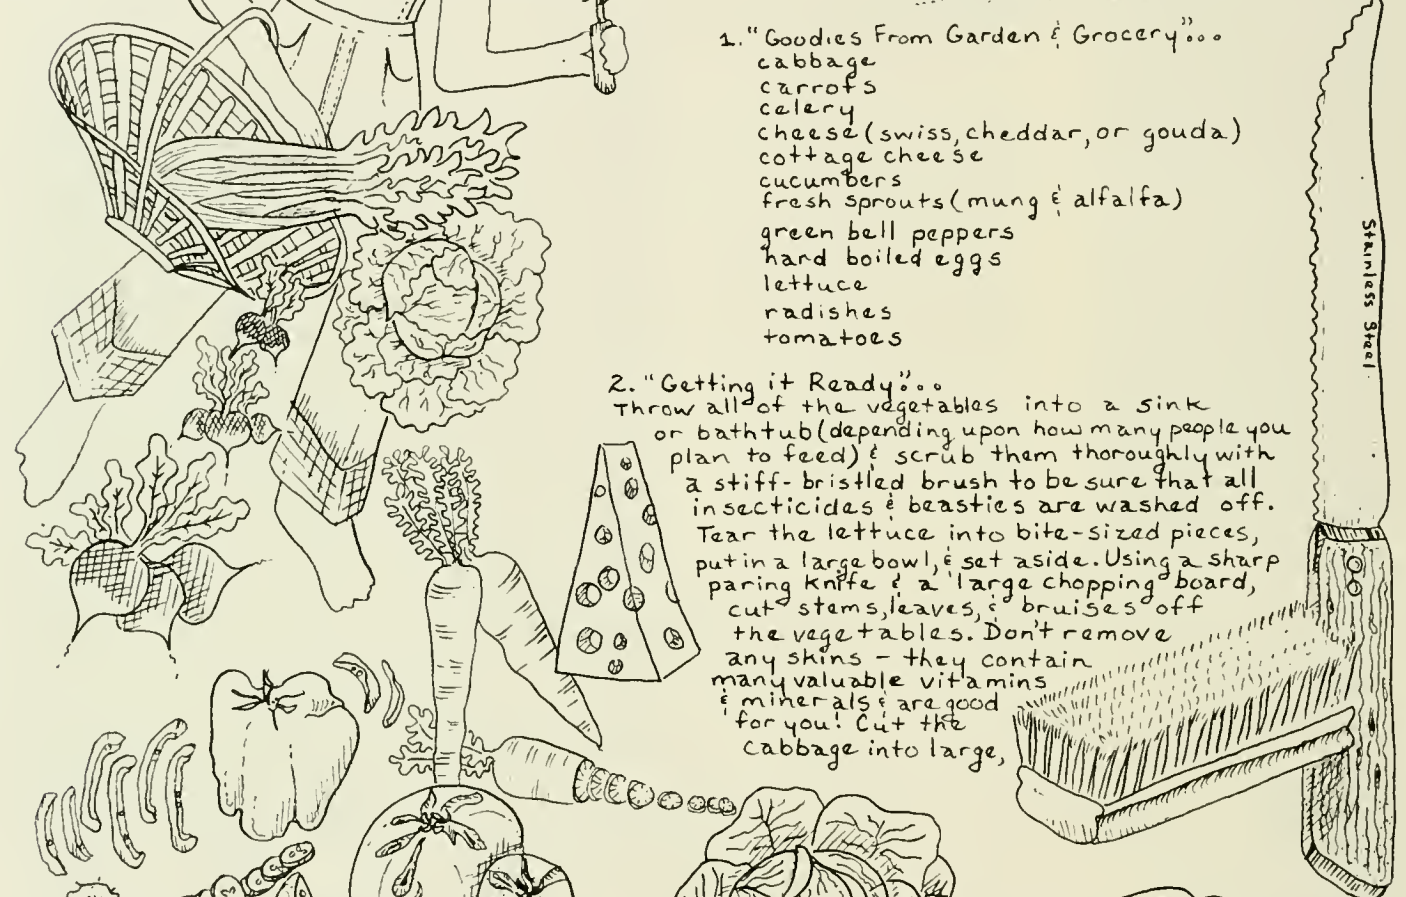 1. "Goodies From Garden & Grocery"...
cabbage
carrots
celery
cheese (swiss, cheddar, or gouda)
cottage cheese
cucumbers
fresh sprouts (mung & alfalfa)
green bell peppers
hard boiled eggs
lettuce
radishes
tomatoes
2. "Getting it Ready"...
Throw all of the vegetables into a sink
or bathtub (depending upon how many people you
plan to feed) & scrub them thoroughly with
a stiff-bristled brush to be sure that all
insecticides & beasties are washed off.
Tear the lettuce into bite-sized pieces,
put in a large bowl, & set aside. Using a sharp
paring knife & a large chopping board,
cut stems, leaves, & bruises off
the vegetables. Don't remove
any skins – they contain
many valuable vitamins
& minerals & are good
for you! Cut the
cabbage into large,
Stainless Steel